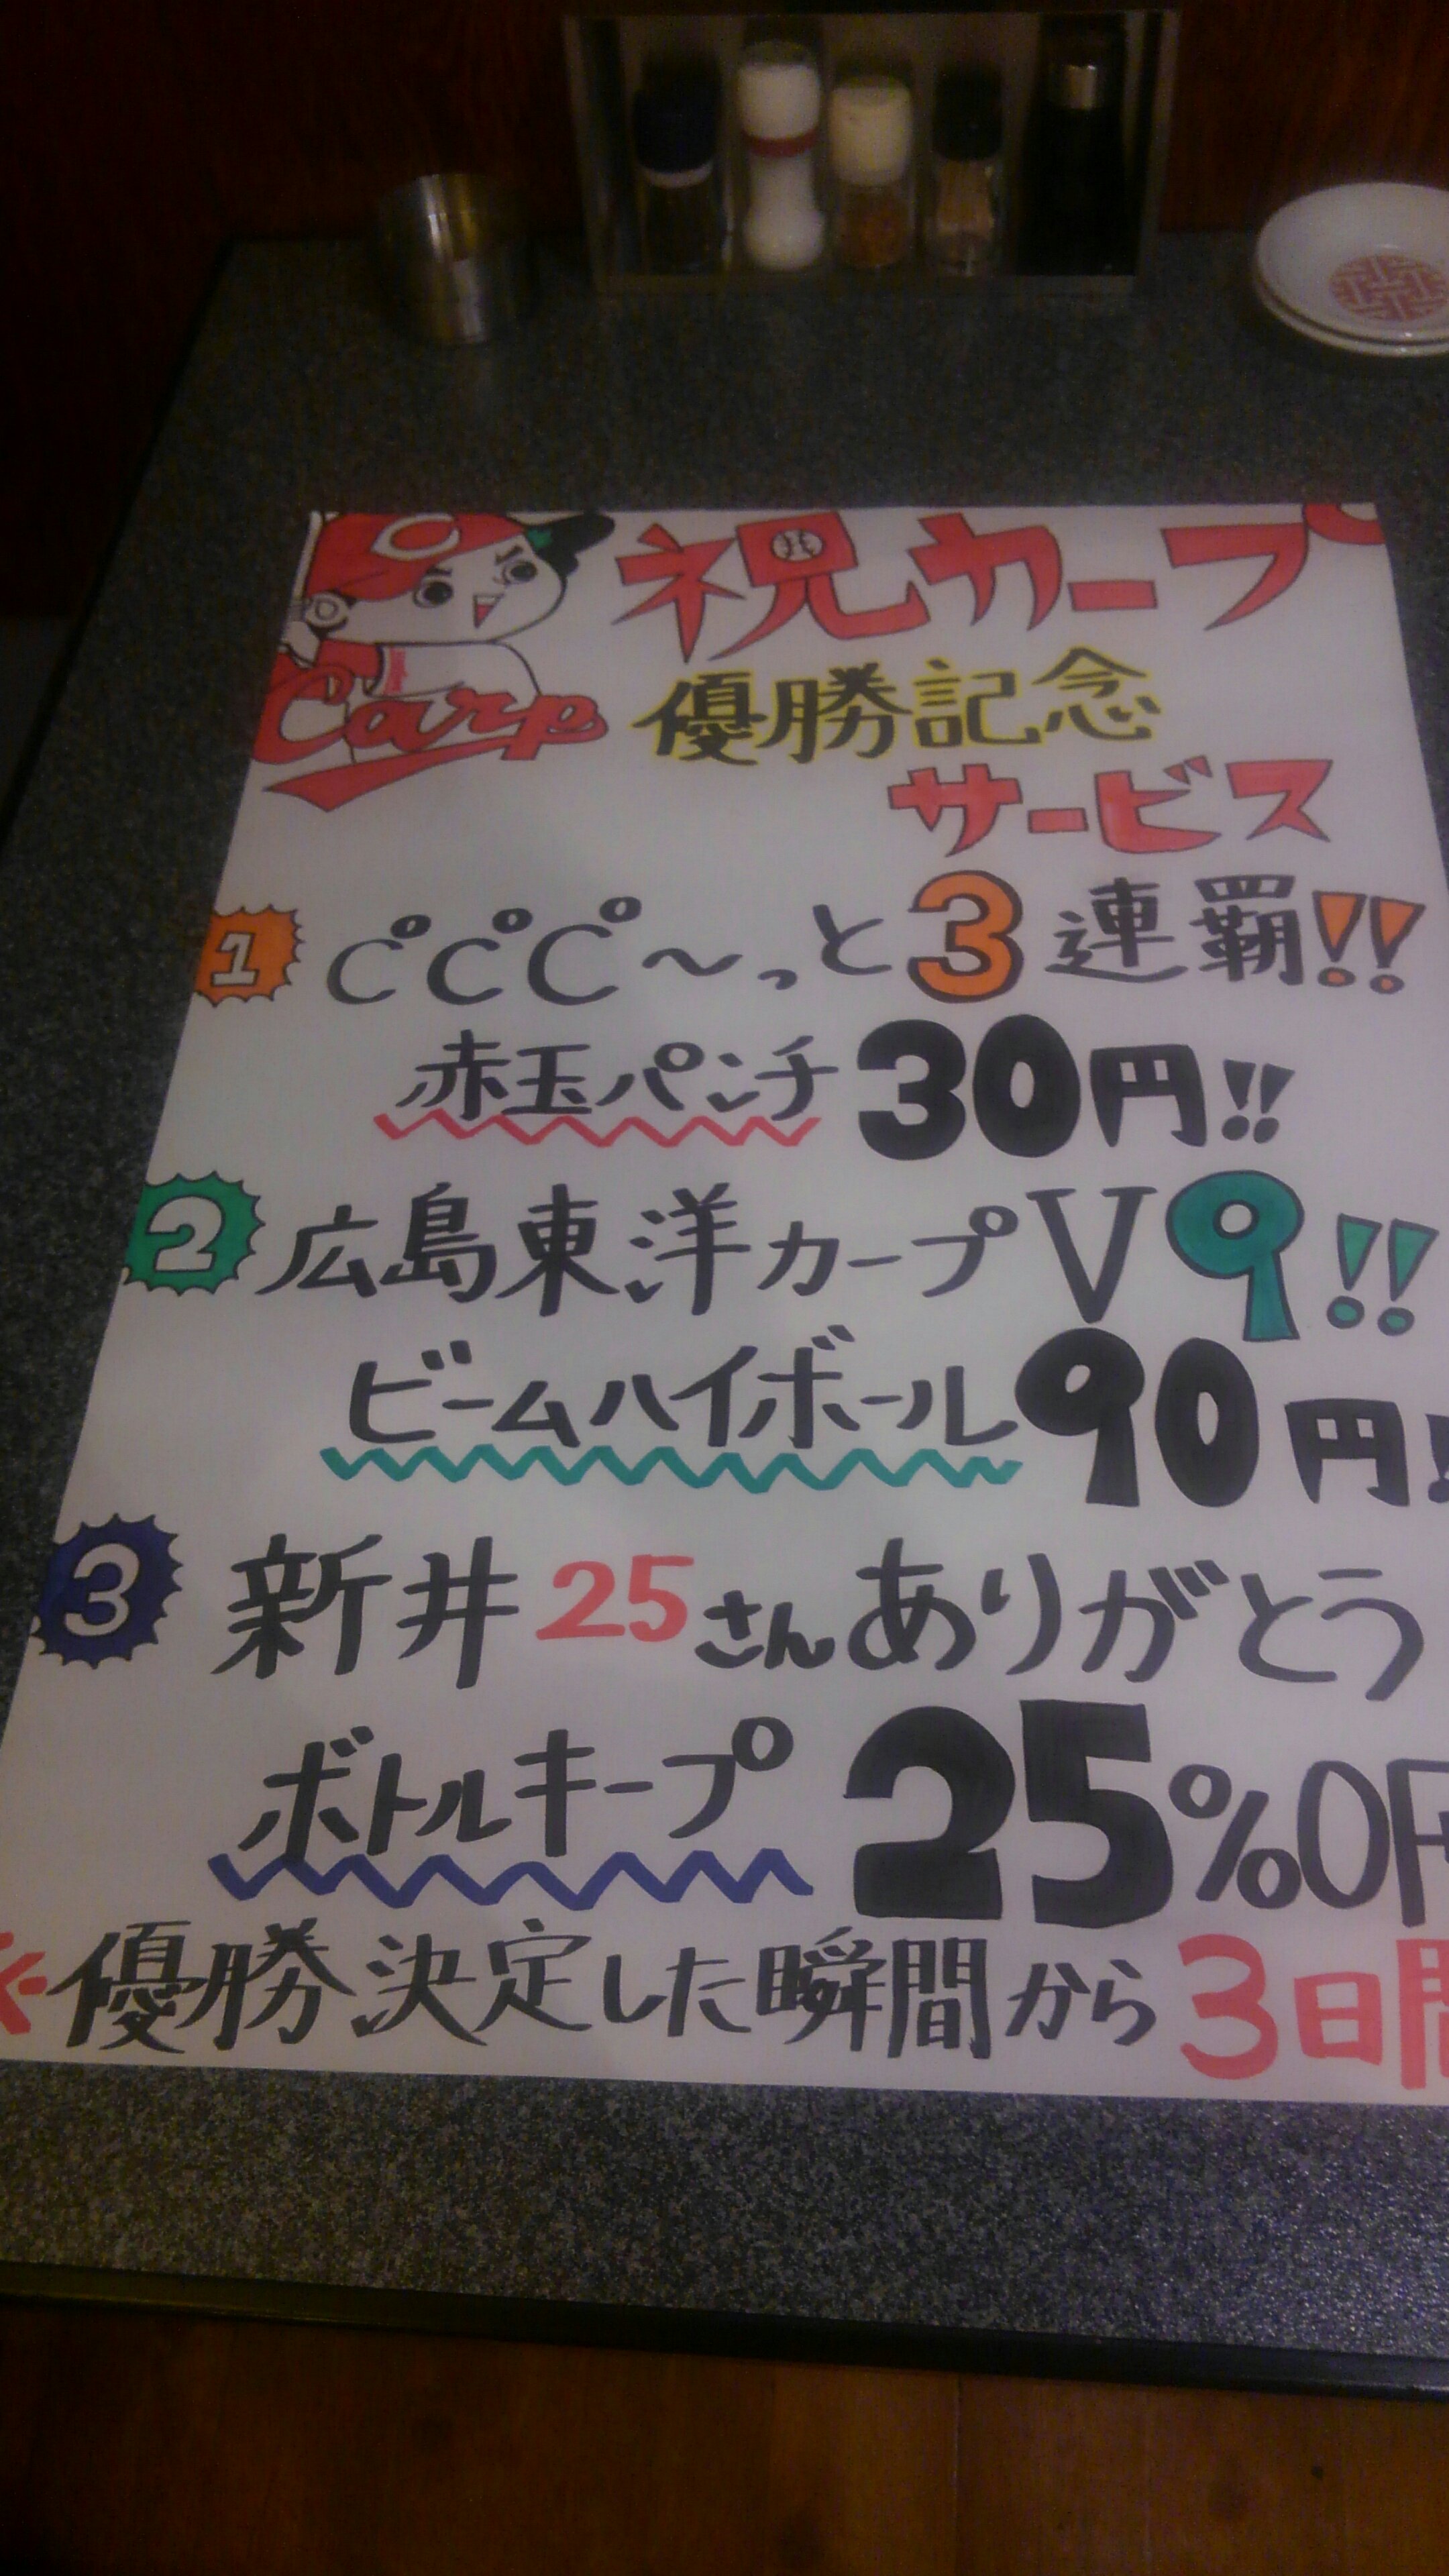 祝カープ
Carp
優勝記念
サービス
1 C゜C゜C゜～っと3連覇!!
赤玉パンチ30円!!
2 広島東洋カープV9!!
ビームハイボール90円!!
3 新井25さんありがとう
ボトルキープ 25%OF
※優勝決定した瞬間から3日間